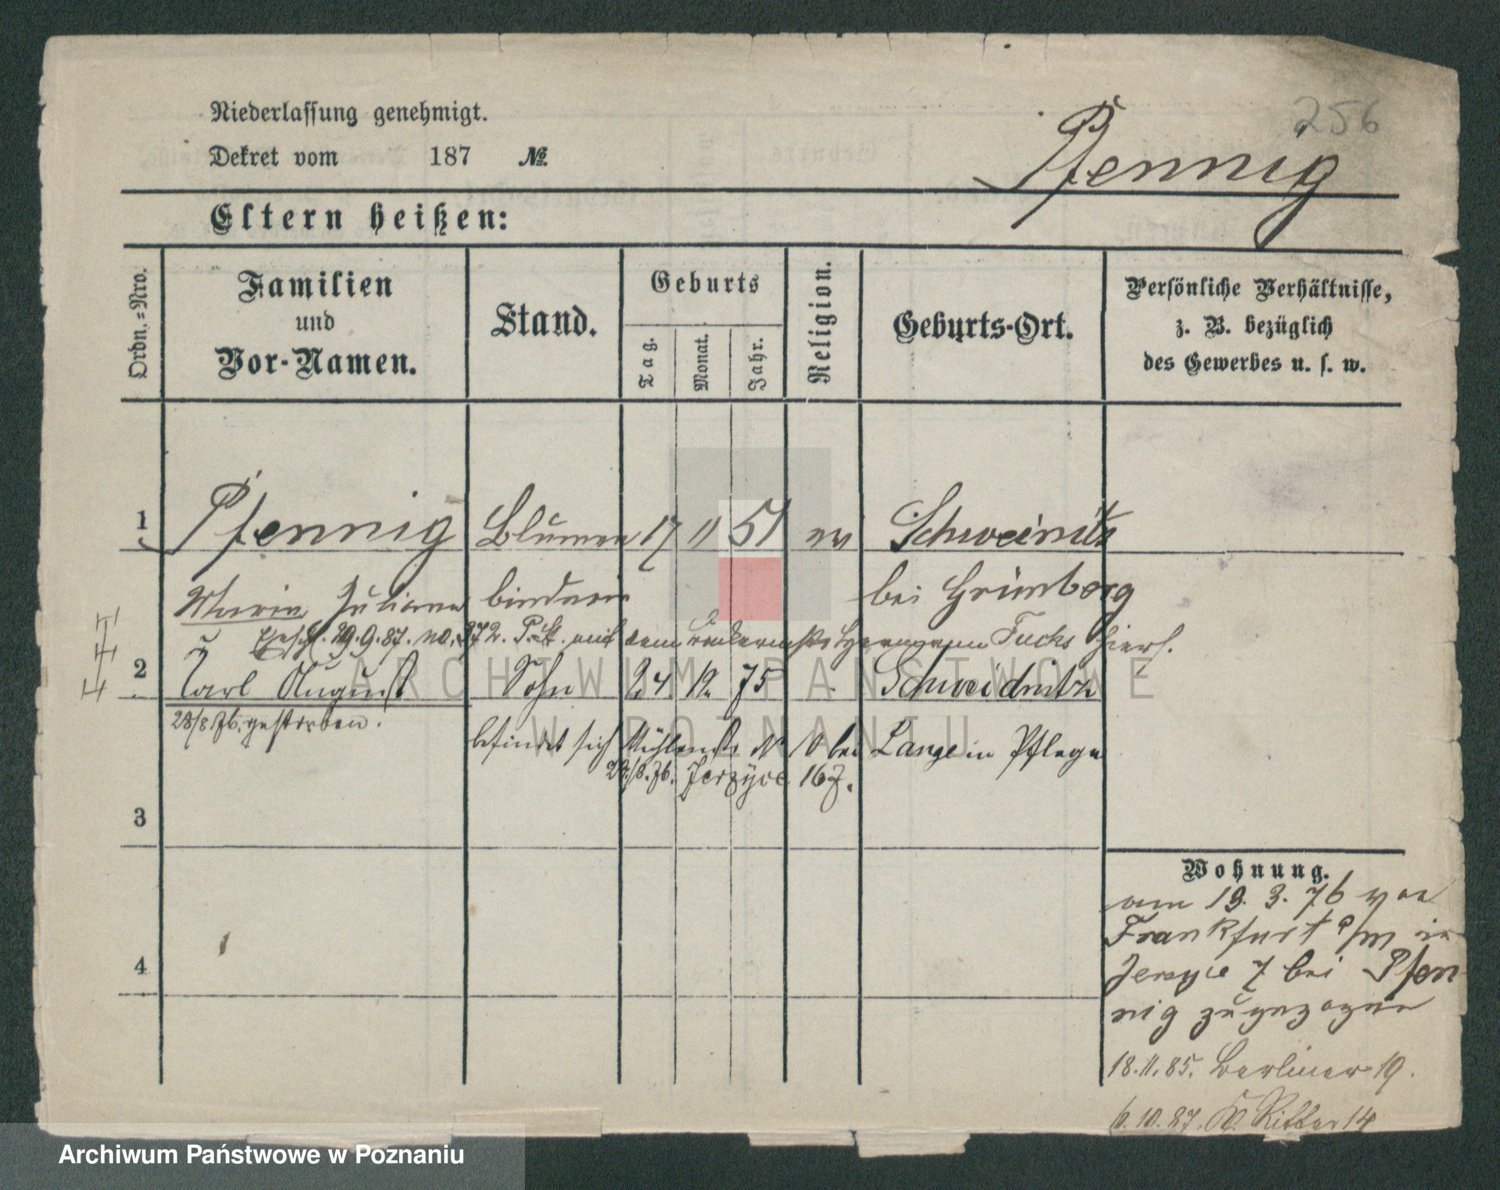 256
Niederlassung genehmigt.
Dekret vom 187 №
Pfennig
Eltern heißen:
Ordn.=Nro.
Familien
und
Vor-Namen.
Stand.
Geburts
Tag.
Monat.
Jahr.
Religion.
Geburts-Ort.
Persönliche Verhältnisse,
z. B. bezüglich
des Gewerbes u. s. w.
1 Pfennig Blumen 17 11 51 ev Schweinitz
Marie Juliane binderin bei Grünberg
29.9.87. no. 372. mit dem Fuchs hiers.
2 Carl August Sohn 24. 12. 75 Schweidnitz
28/8 76. gestorben.
befindet sich Mühlenstr № 10 bei Lange in Pflege
Jerzyce 167.
3
4
Wohnung.
am 19. 3. 76 von
Frankfurt a/m in
Jerzyce 7 bei Pfen
nig zugezogen
18.11.85. Berliner 19.
10.87. Ritter 14
ARCHIWUM PAŃSTWOWE
W POZNANIU
Archiwum Państwowe w Poznaniu